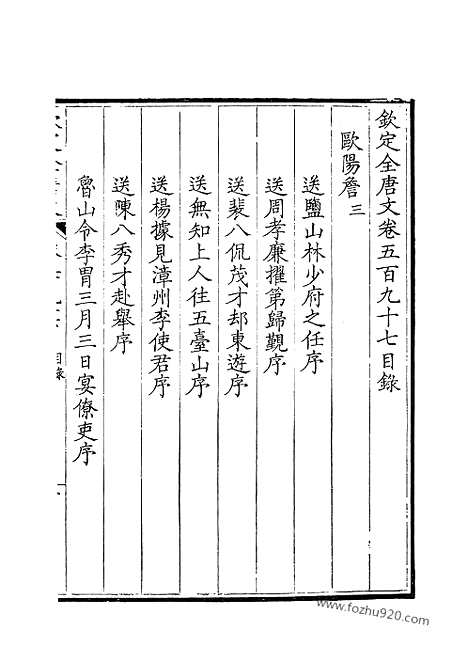 欽定全唐文卷五百九十七目錄
歐陽詹三
送鹽山林少府之任序
送周孝廉擢第歸覲序
送裴八侃茂才却東遊序
送無知上人往五臺山序
送楊據見漳州李使君序
送陳八秀才赴舉序
魯山令李胄三月三日宴僚吏序
目錄
www.fozhu920.com